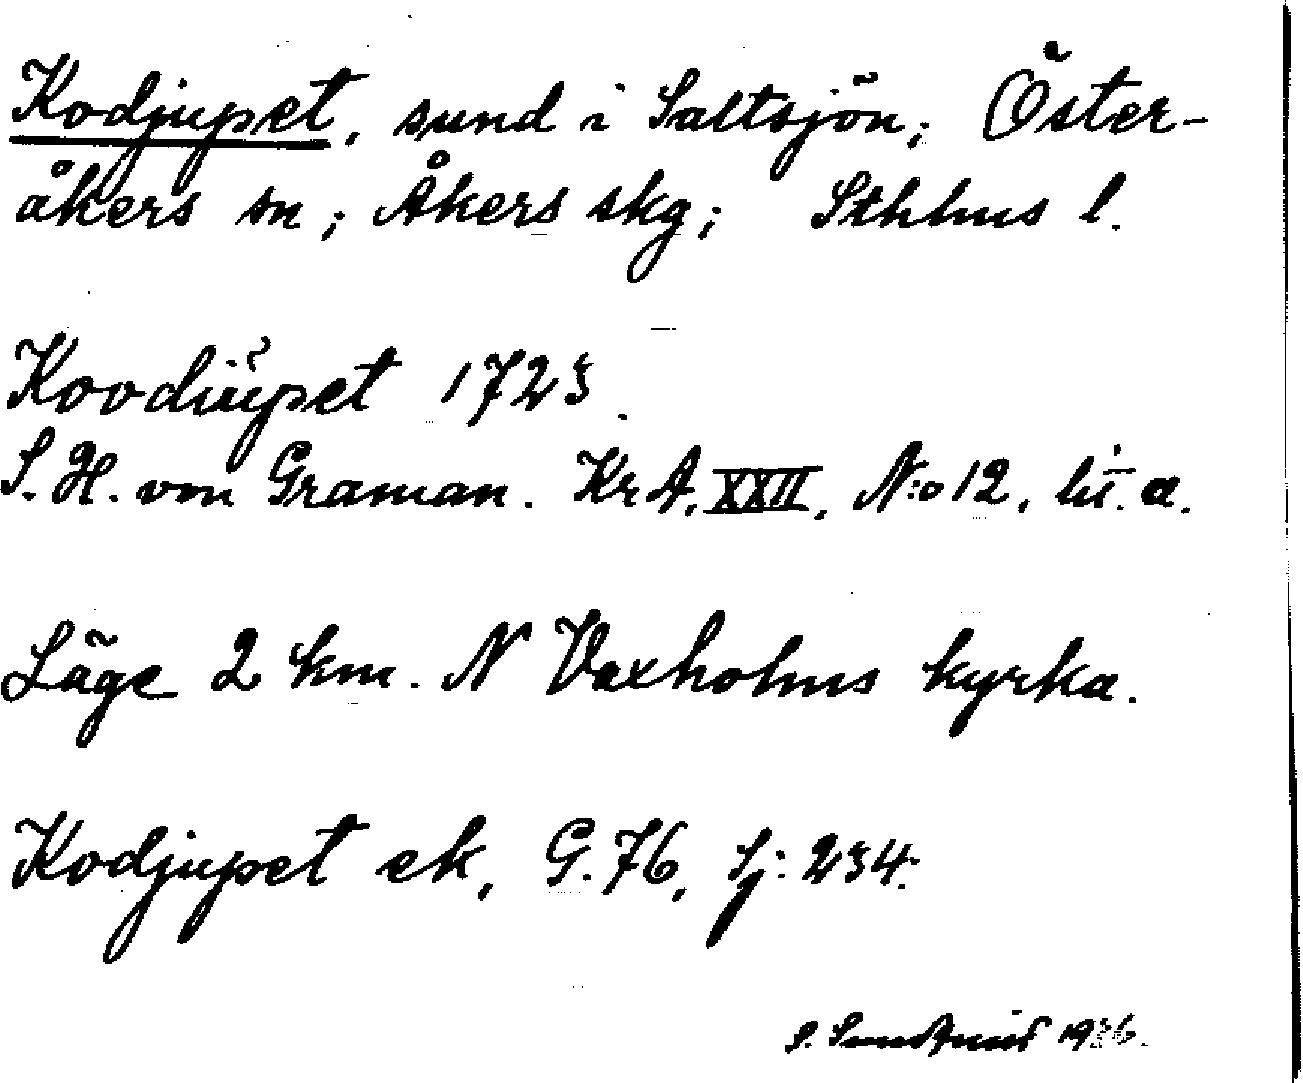 Kodjupet, sund i Saltsjön; Öster-
åkers sn; Åkers skg; Sthlms l.
Koodiüpet 1723.
S. H. von Graman. Kr A, XXII, N:o 12, lit. a.
Läge 2 km. N Vaxholms kyrka.
Kodjupet ek, G. 76, Sj: 234.
S. 1936.